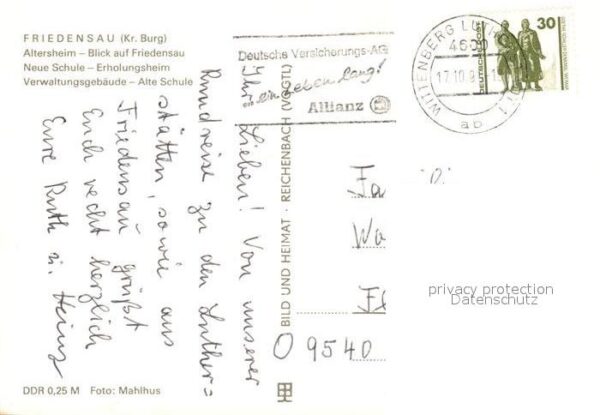 FRIEDENSAU (Kr. Burg)
Altersheim – Blick auf Friedensau
Neue Schule – Erholungsheim
Verwaltungsgebäude – Alte Schule
Ihr Lieben! Von unserer
Rundreise zu den Luther=
stätten, sowie aus
Friedensau grüßt
Euch recht herzlich
Eure Ruth u. Heinz
DDR 0,25 M Foto: Mahlhus
BILD UND HEIMAT · REICHENBACH (VOGTL)
Deutsche Versicherungs-AG
...ein Leben lang!
Allianz
WITTENBERG LU
4600
17.10.9
ab
30
DEUTSCHE POST
Fa
Wa
O 9540
privacy protection
Datenschutz